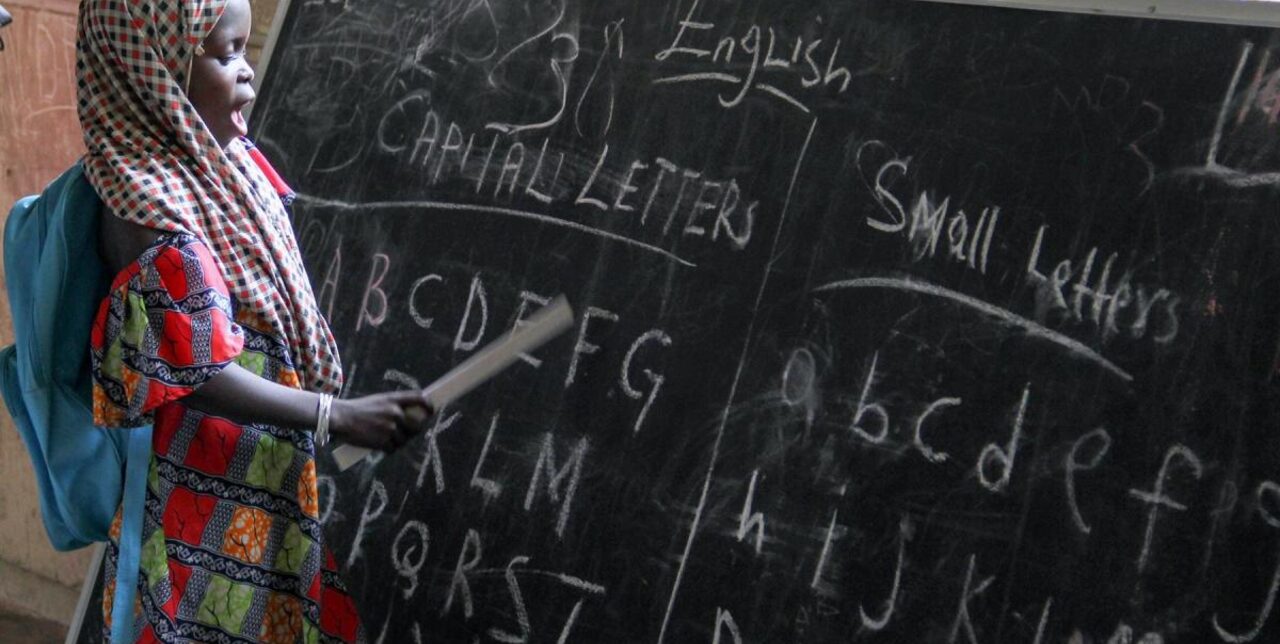 English
CAPITALL LETTERS
A B C D E F G
K L M
O P Q R S T
Small Letters
a b c d e f g
h i j k l
n